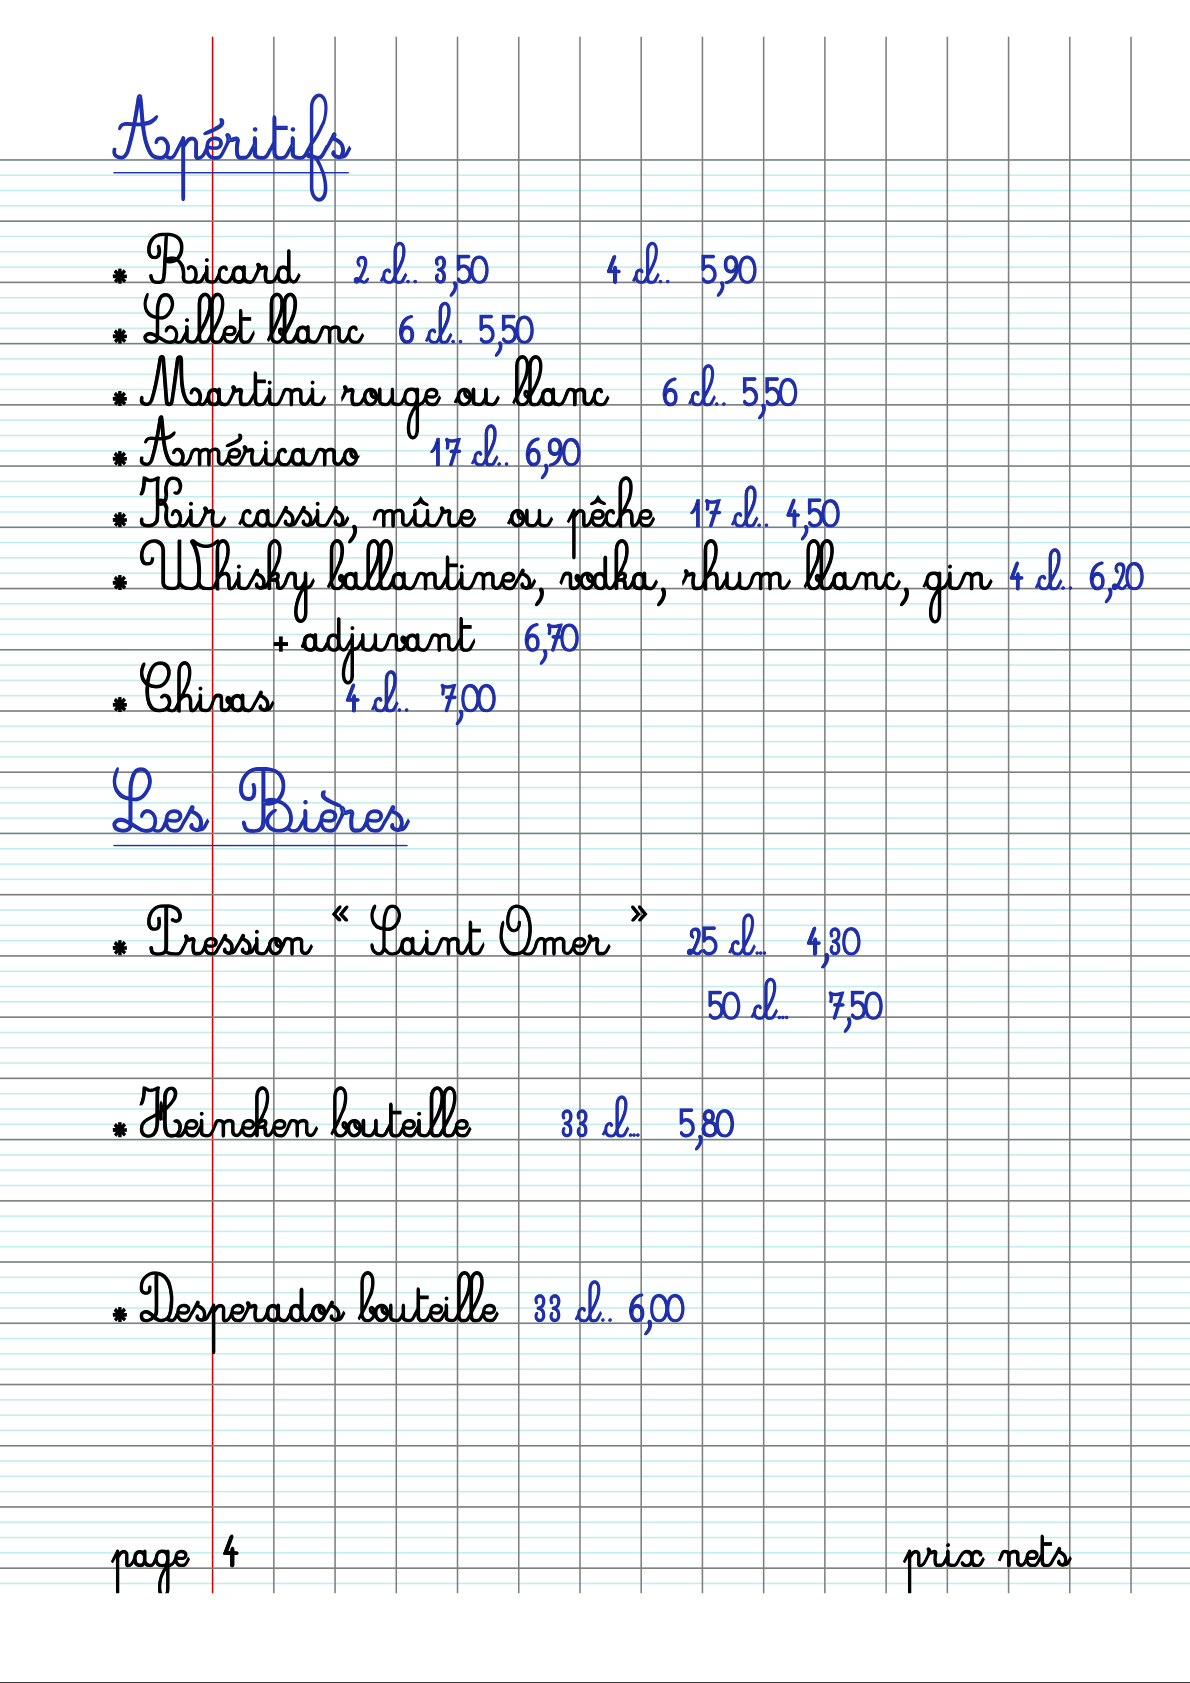 Apéritifs
* Ricard 2 cl.. 3,50 4 cl.. 5,90
* Lillet blanc 6 cl.. 5,50
* Martini rouge ou blanc 6 cl.. 5,50
* Américano 17 cl.. 6,90
* Kir cassis, mûre ou pêche 17 cl.. 4,50
* Whisky ballantines, vodka, rhum blanc, gin 4 cl.. 6,20
+ adjuvant 6,70
* Chivas 4 cl.. 7,00
Les Bières
* Pression « Saint Omer » 25 cl... 4,30
50 cl... 7,50
* Heineken bouteille 33 cl... 5,80
* Desperados bouteille 33 cl.. 6,00
page 4 prix nets